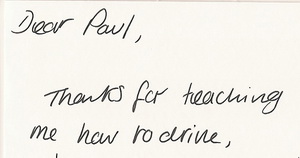 Dear Paul,
Thanks for teaching
me how to drive,